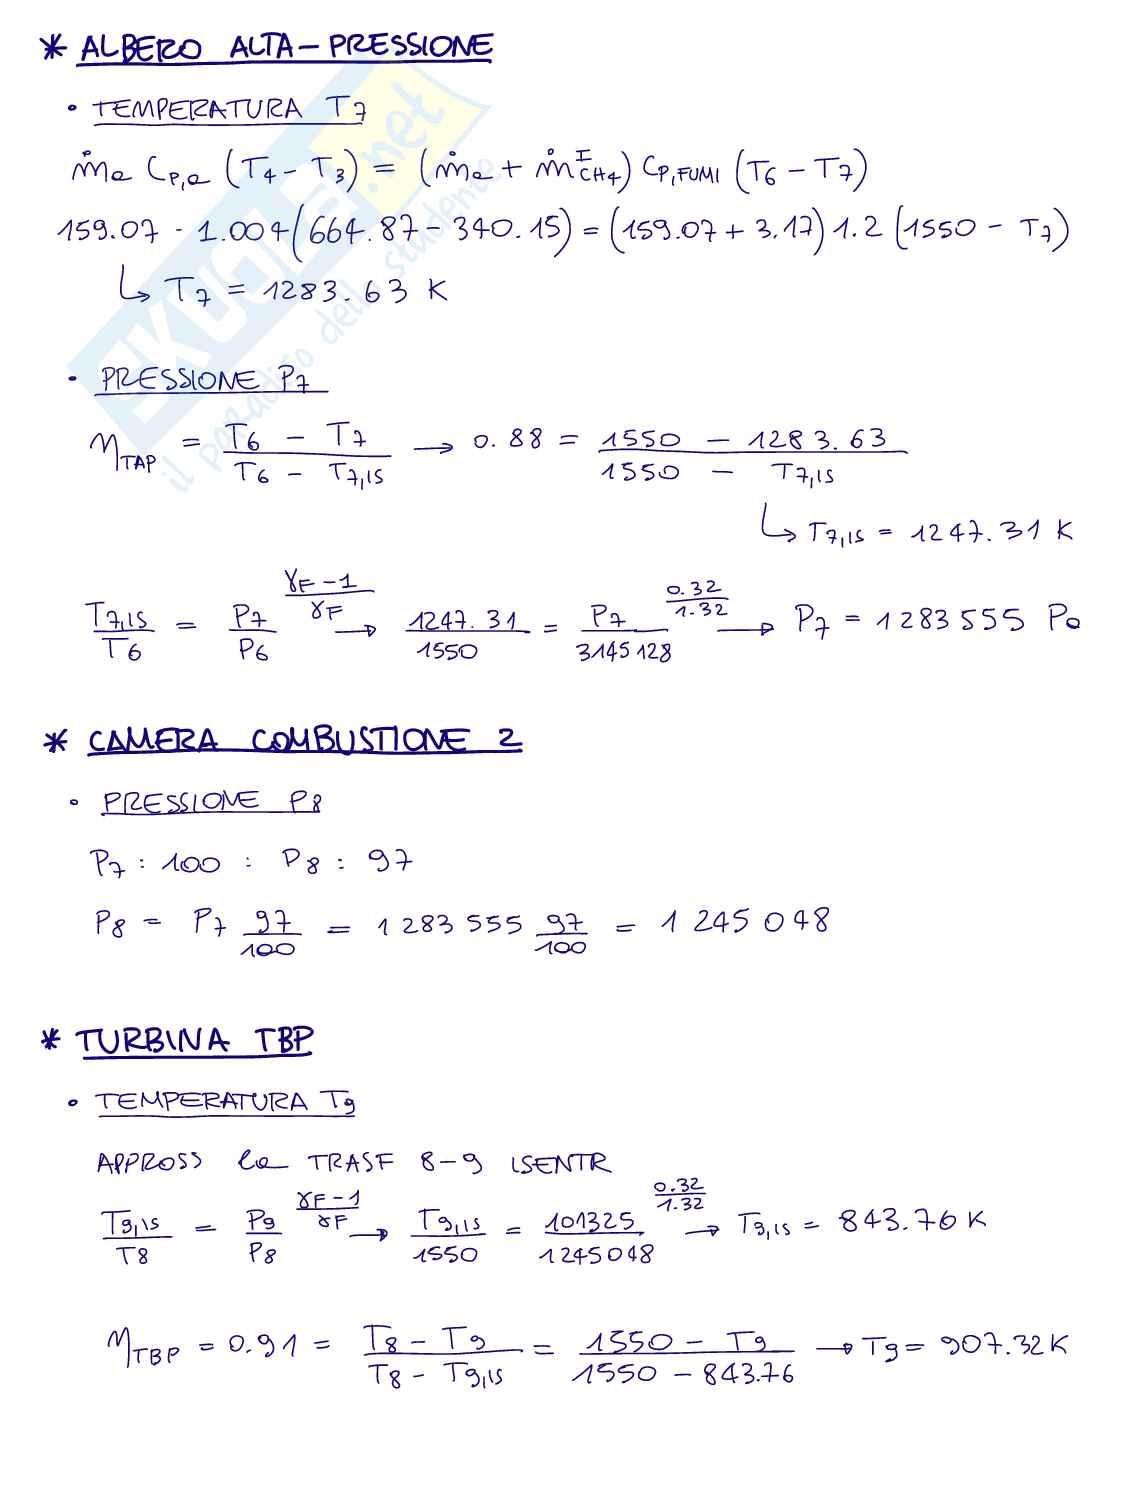 * ALBERO ALTA-PRESSIONE
• TEMPERATURA T7
ṁa Cp,a (T4 - T3) = (ṁa + ṁ^I_CH4) Cp,FUMI (T6 - T7)
159.07 · 1.004 (664.87 - 340.15) = (159.07 + 3.17) 1.2 (1550 - T7)
↳ T7 = 1283.63 K
• PRESSIONE P7
η_TAP = (T6 - T7)/(T6 - T7,IS) → 0.88 = (1550 - 1283.63)/(1550 - T7,IS)
↳ T7,IS = 1247.31 K
T7,IS/T6 = P7/P6^((γF-1)/γF) → 1247.31/1550 = P7/3145128^(0.32/1.32) → P7 = 1283555 Pa
* CAMERA COMBUSTIONE 2
• PRESSIONE P8
P7 : 100 : P8 : 97
P8 = P7 97/100 = 1283555 97/100 = 1245048
* TURBINA TBP
• TEMPERATURA T9
APPROSS la TRASF 8-9 ISENTR
T9,IS/T8 = P9/P8^((γF-1)/γF) → T9,IS/1550 = 101325/1245048^(0.32/1.32) → T9,IS = 843.76 K
η_TBP = 0.91 = (T8 - T9)/(T8 - T9,IS) = (1550 - T9)/(1550 - 843.76) → T9 = 907.32 K
SKUOLA.net
il paradiso dello studente